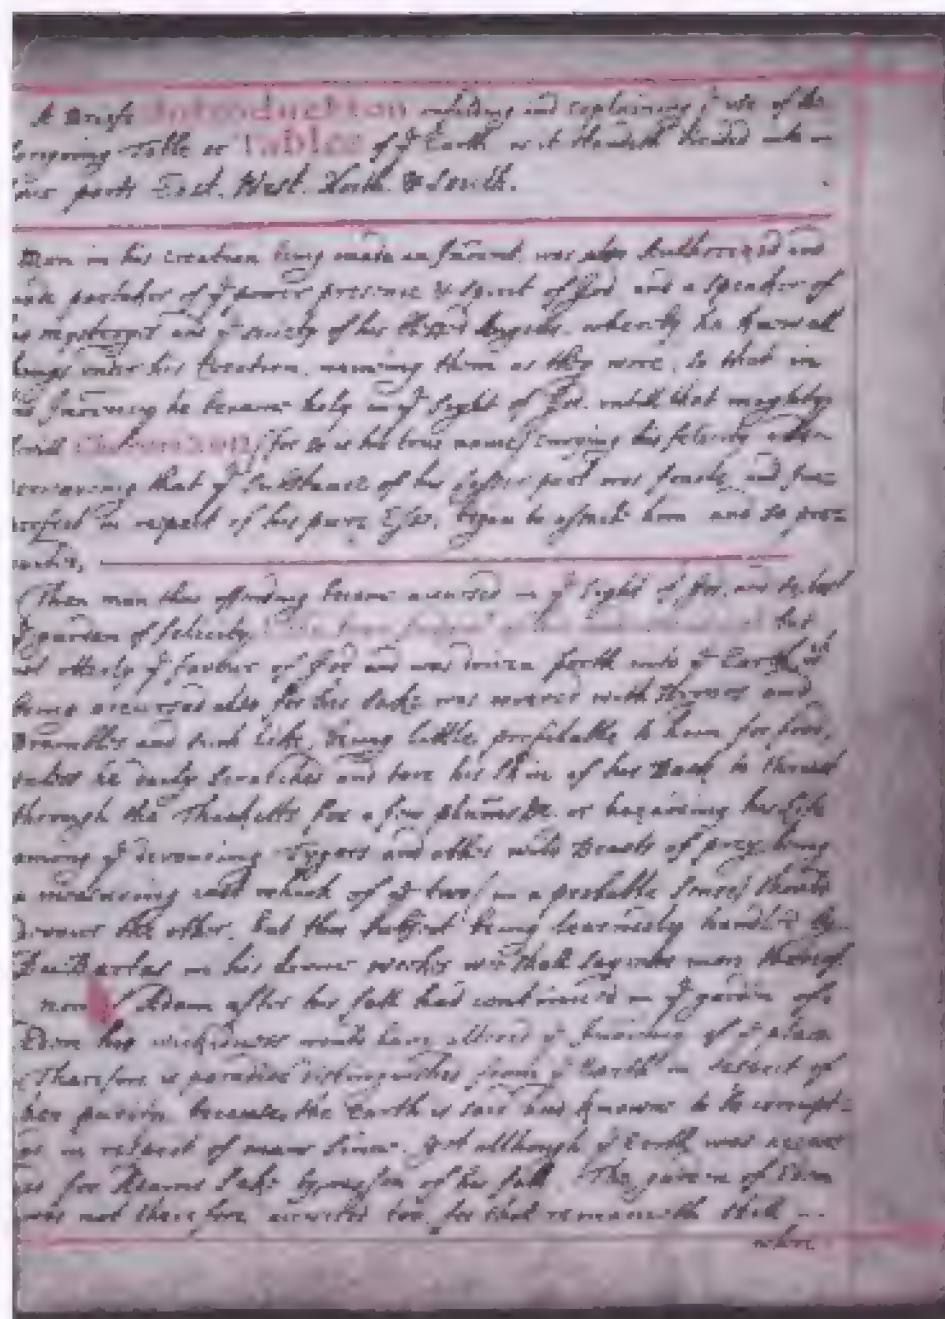 A Briefe Introduction and explaining ye use of the
foregoing Table or Tables of ye Earth as it standeth divided into
four parts East. West. North. & South.
Man in his creation being made an Innocent, was also Authorized and
made partaker of ye power presence & spirit of God, and a speaker of
his mysteryes and ye society of his blessed Angels, whereby he knew all
things under his Creation, naming them as they were, so that in
his Innocency he became holy in ye sight of God, untill that mighty
Devill Coronzom (for so is his true name) envying his felicity when
perceaving that ye substance of his lesser part was fraile, and
in respect of his pure Esse, began to assault him and so
Then man thus offending became accursed in ye sight of God, and so lost
ye garden of felicity but
not utterly ye favour of God and was driven forth unto ye Earth
being accursed also for his sake was covered with Thornes and
Brambles and such like, being little profitable to him for food,
unless he dayly scratches and tore his skin of his Back to thread
through the Thicketts for a few or his life
among ye devouring Tygers and other wild Beasts of prey, being
a which of ye two (in a probable sense) should
devour the other, but this subject being learnedly handled by
Du Bartas in his divine works we shall say no more thereof
now if Adam after his fall had continued in ye garden of
Eden his wickedness would have altered ye Innocency of ye place
Therefore is paradise distinguished from ye Earth in respect of
her purity, because the Earth is said and knowne to be corrupt
in respect of mans sinne. Yet although ye Earth was accurs
for Adams sake by reason of his fall. The garden of Eden
was not therefore accursed too, for that remaineth still
where